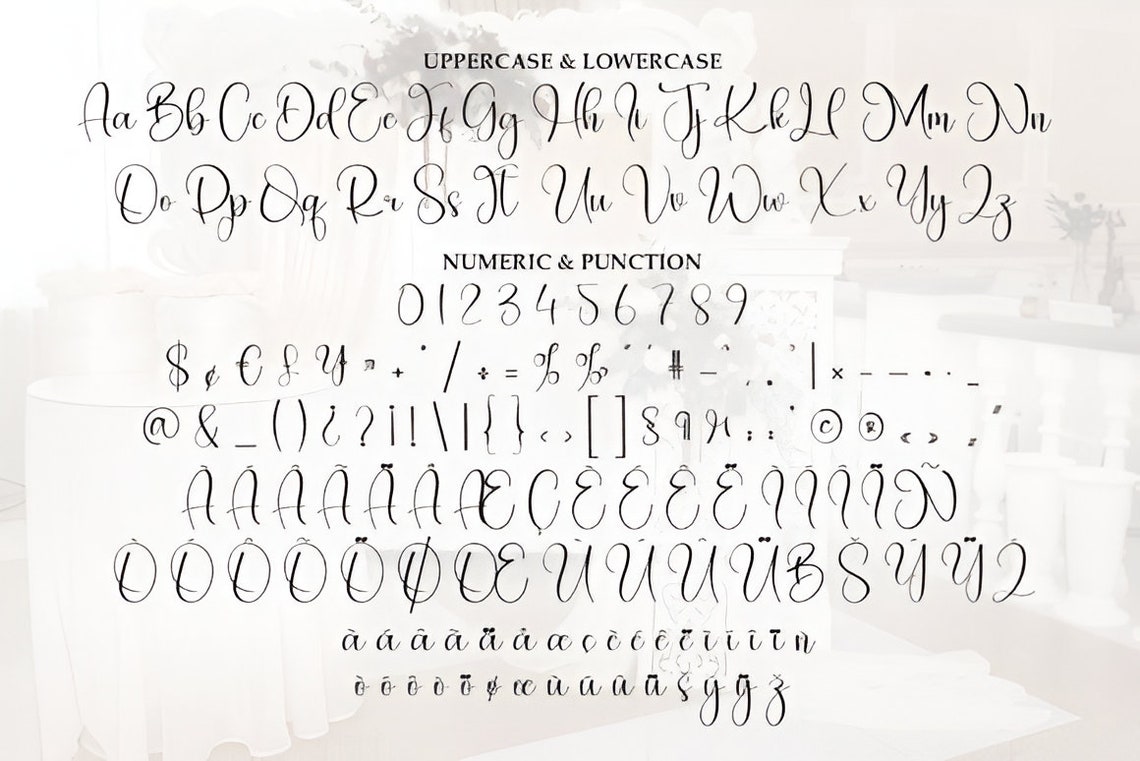 UPPERCASE & LOWERCASE
Aa Bb Cc Dd Ee Ff Gg Hh Ii Jj Kk Ll Mm Nn
Oo Pp Qq Rr Ss Tt Uu Vv Ww Xx Yy Zz
NUMERIC & PUNCTION
0 1 2 3 4 5 6 7 8 9
$ ¢ € £ ¥ + / ÷ = % ‰ # – | × – – _
@ & _ ( ) ¿ ? ¡ ! \ | { } ‹ › [ ] § ¶ : ; © ® ‹ ›
À Á Â Ã Ä Å Æ Ç È É Ê Ë Ì Í Î Ï Ñ
Ò Ó Ô Õ Ö Ø Œ Ù Ú Û Ü ß Š Ý Ÿ Ž
à á â ã ä å æ ç è é ê ë ì í î ï ñ
ò ó ô õ ö ø œ ù ú û ü š ý ÿ ž